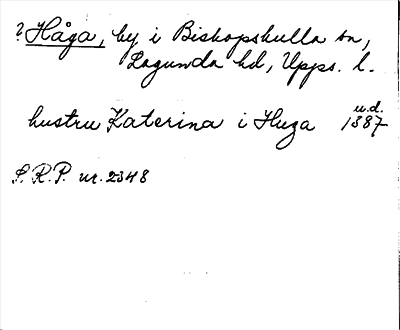 ? Håga, by i Biskopskulla sn,
Lagunda hd, Upps. l.
hustru Katerina i Huga u.d. 1387
S.R.P. nr. 2348